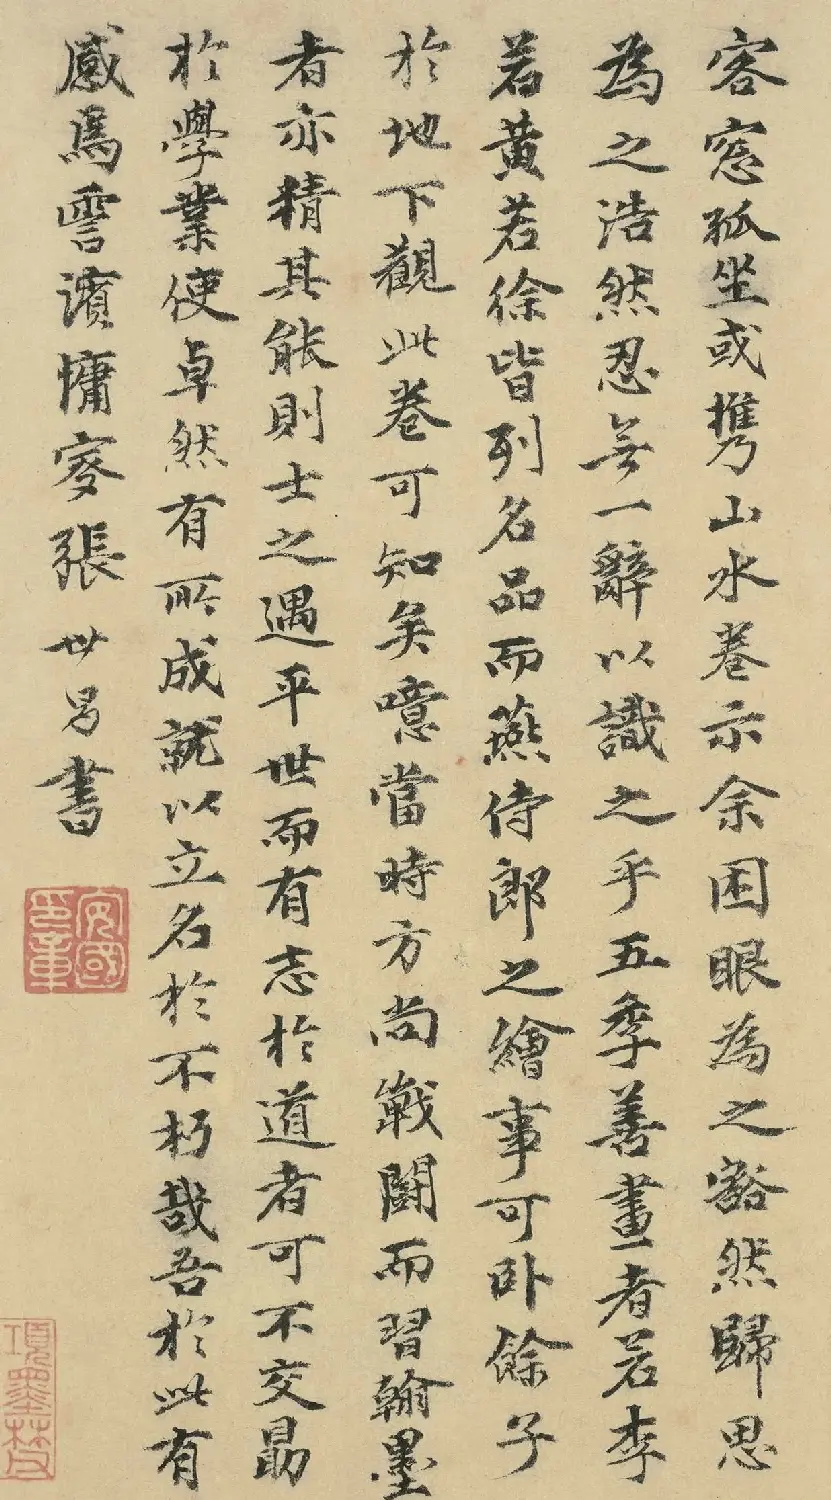 客窓孤坐或携山水卷示余困眼為之豁然歸思
為之浩然忍無一辭以識之乎五季善畫者若李
若黃若徐皆列名品而燕侍郎之繪事可卧餘子
於地下觀此卷可知矣噫當時方尚戰鬪而習翰墨
者亦精其能則士之遇平世而有志於道者可不交勗
於學業使卓然有所成就以立名於不朽哉吾於此有
感焉霅濱慵叜張世昌書
安國
項墨林父